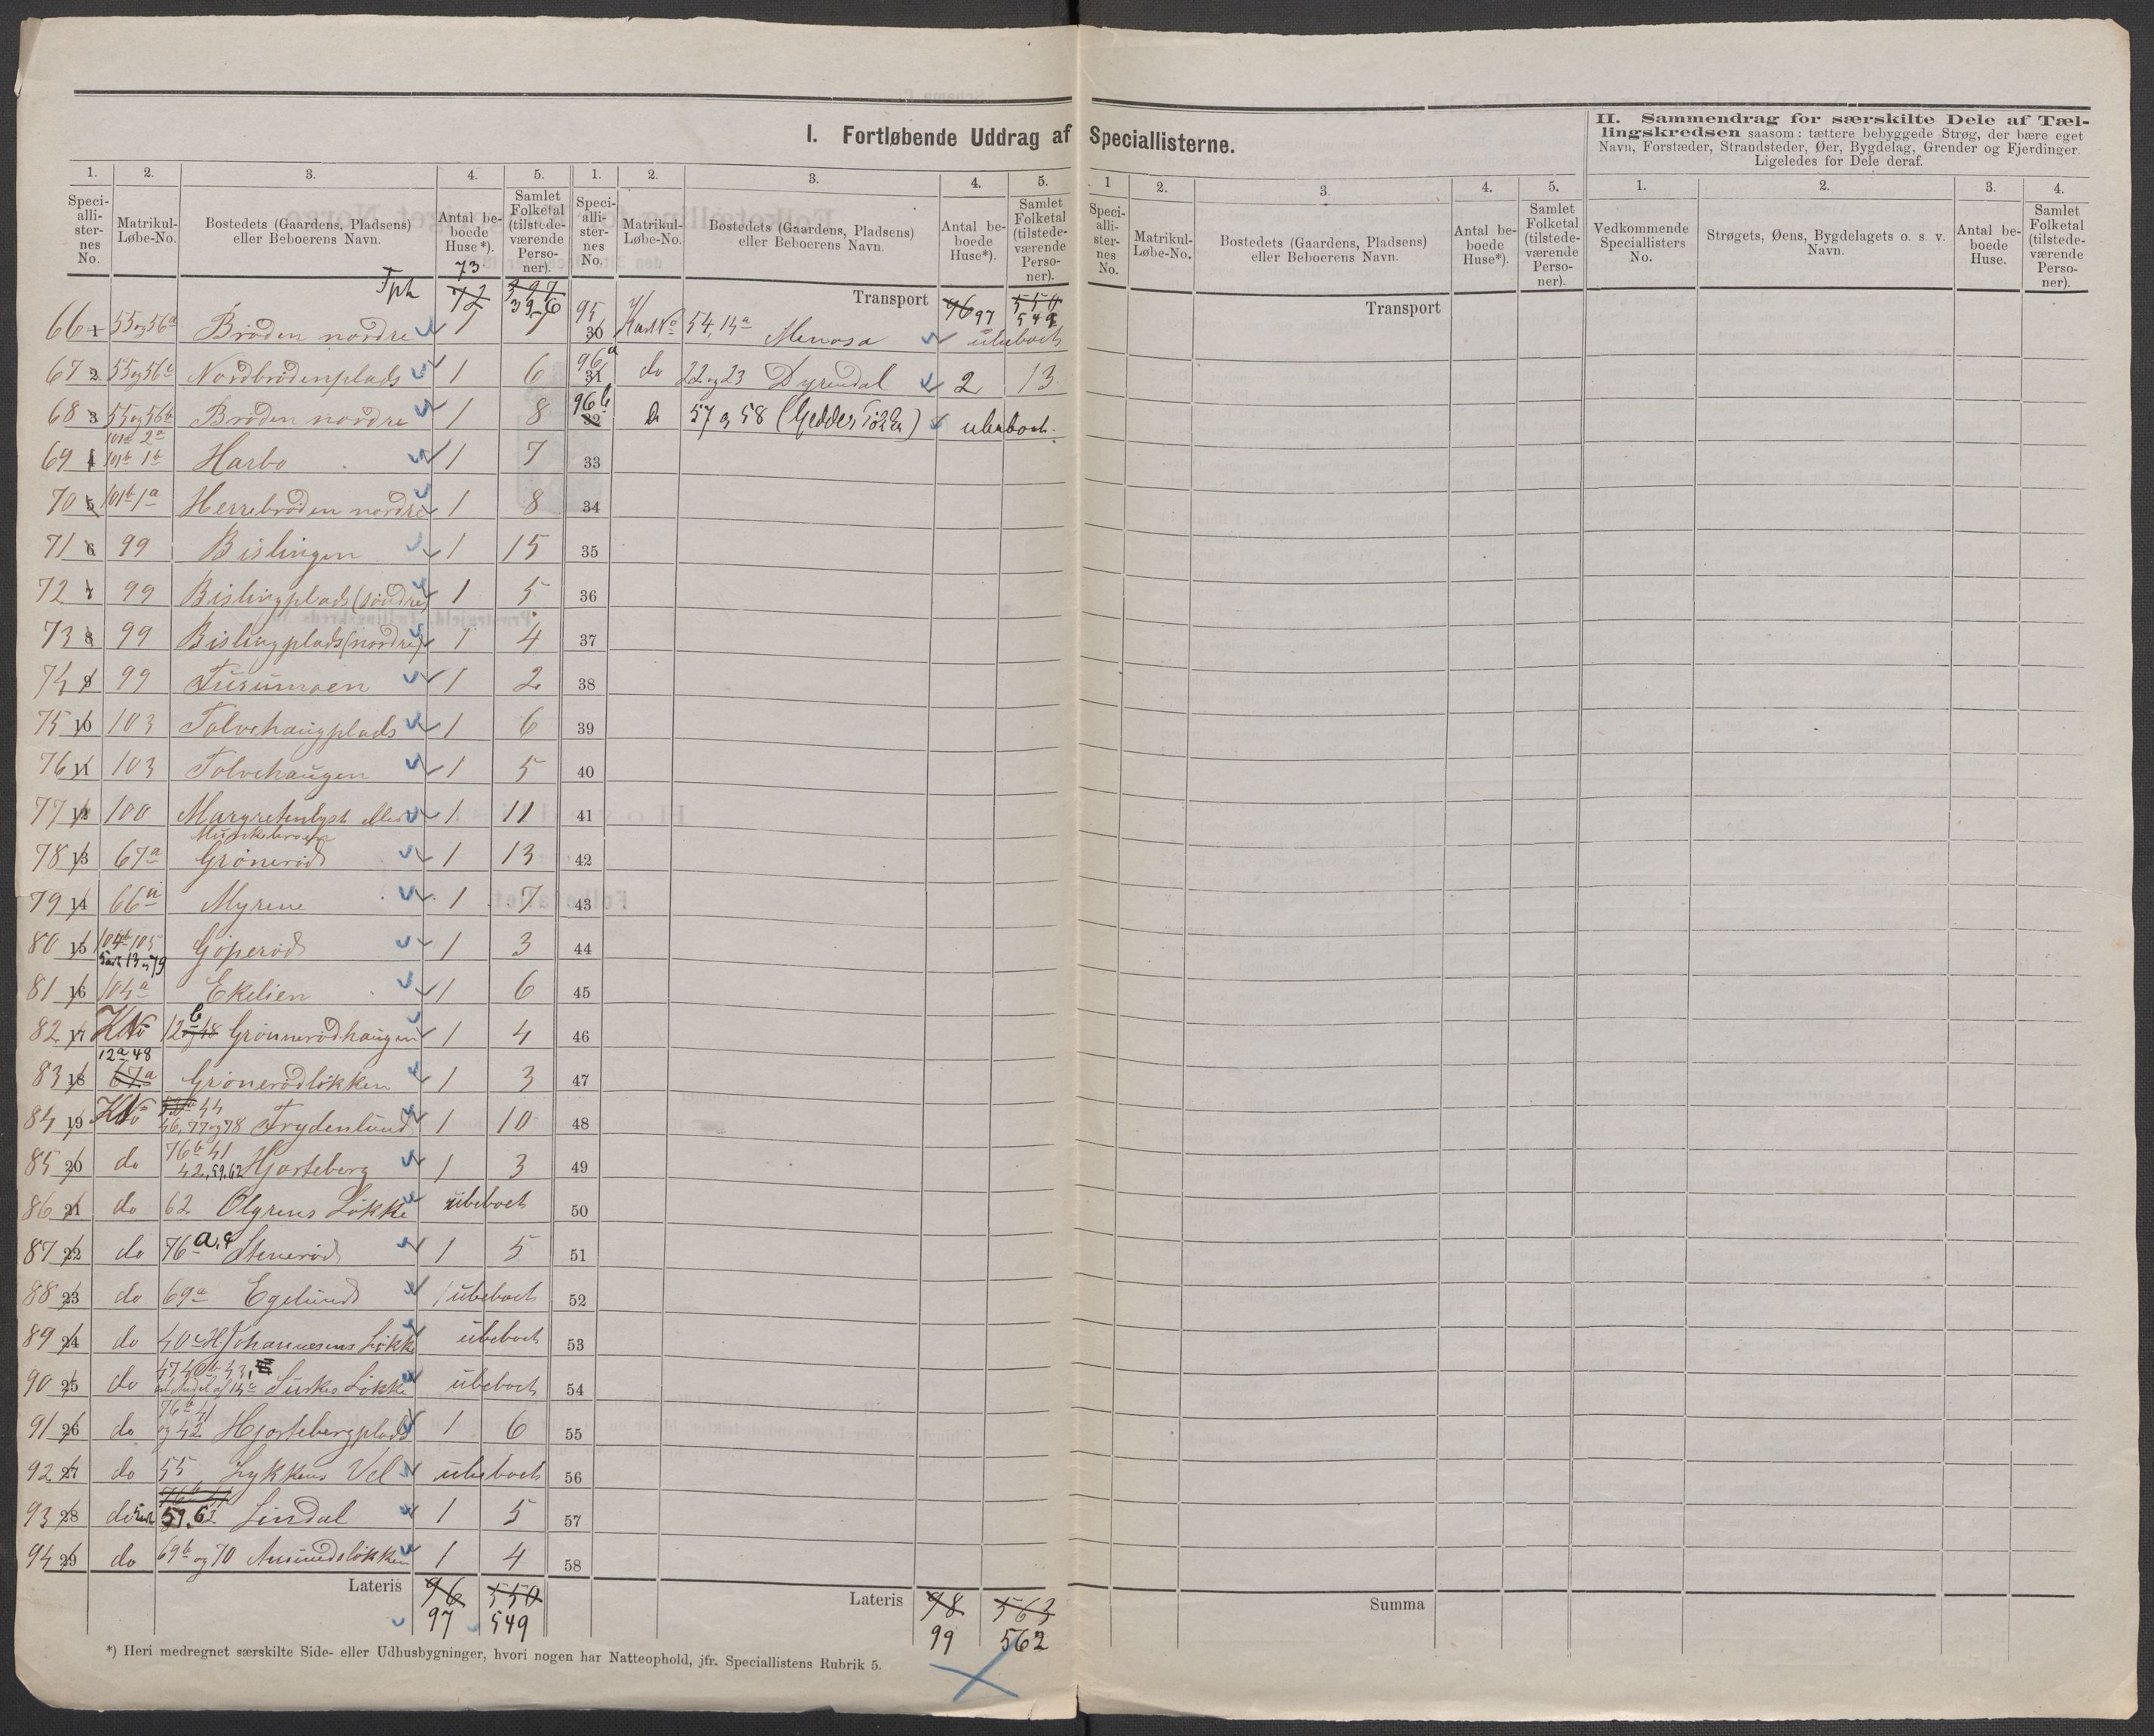 I. Fortløbende Uddrag af Speciallisterne.
II. Sammendrag for særskilte Dele af Tæl-
lingskredsen saasom: tættere bebyggede Strøg, der bære eget
Navn, Forstæder, Strandsteder, Øer, Bygdelag, Grender og Fjerdinger.
Ligeledes for Dele deraf.
1. 2. 3. 4. 5.
Speci-alli-ster-nes No. Matrikul-Løbe-No. Bostedets (Gaardens, Pladsens) eller Beboerens Navn. Antal be-boede Huse*). Samlet Folketal (tilstede-værende Perso-ner).
Tph 73 72 397 396
66 1 55 og 56a Bröden nordre 1 7
67 2 55 og 56c Nordbrödenplads 1 6
68 3 55 og 56b Bröden nordre 1 8
69 4 101b 2a 101b 1b Harbo 1 7
70 5 101b 1a Herrebröden nordre 1 8
71 6 99 Bislingen 1 15
72 7 99 Bislingplads (söndre) 1 5
73 8 99 Bislingplads (nordre) 1 4
74 9 99 Tusumoen 1 2
75 10 103 Tolvehaugplads 1 6
76 11 103 Tolvehaugen 1 5
77 12 100 Margretenlyst eller 1 11
Munkebroen
78 13 67a Gröneröd 1 13
79 14 66a Myrene 1 7
80 15 104b 105 Göperöd 1 3
samt 13 og 79
81 16 104a Ekelien 1 6
82 17 KNo 12b og 48 Grönnerödhaugen 1 4
12a 48
83 18 67a Grönerödlökken 1 3
84 19 KNo 44 46, 77 og 78 Frydenlund 1 10
85 20 do 76b 41 42, 59, 62 Hjorteberg 1 3
86 21 do 62 Olgrens Lökke ubeboet
87 22 do 76a, c Steneröd 1 5
88 23 do 69a Egelund ubeboet
89 24 do 40c H. Johannesens Lökke ubeboet
90 25 do 47 40b 43, en Andel af 14a Lökke ubeboet
91 26 do 76b 41 og 42 Hjortebergplads 1 6
92 27 do 55 Lykkens Vel ubeboet
93 28 do samt 59, 62 Lindal 1 5
94 29 do 69b og 70 Amundslökken 1 4
Lateris 96 550
97 549
1. 2. 3. 4. 5.
Speci-alli-ster-nes No. Matrikul-Løbe-No. Bostedets (Gaardens, Pladsens) eller Beboerens Navn. Antal be-boede Huse*). Samlet Folketal (tilstede-værende Perso-ner).
Transport 96 97 550 549
95 30 Kart No 54, 14a Menosa ubeboet
96a 31 do 22 og 23 Dyrendal 2 13
96b 32 Do 57 og 58 (Geddes Lökke) ubeboet
33
34
35
36
37
38
39
40
41
42
43
44
45
46
47
48
49
50
51
52
53
54
55
56
57
58
Lateris 98 563
99 562
*) Heri medregnet særskilte Side- eller Udhusbygninger, hvori nogen har Natteophold, jfr. Speciallistens Rubrik 5.
1 2. 3. 4. 5.
Speci-alli-ster-nes No. Matrikul-Løbe-No. Bostedets (Gaardens, Pladsens) eller Beboerens Navn. Antal be-boede Huse*). Samlet Folketal (tilstede-værende Perso-ner).
Transport
Summa
1. 2. 3. 4.
Vedkommende Speciallisters No. Strøgets, Øens, Bygdelagets o. s. v. Navn. Antal be-boede Huse. Samlet Folketal (tilstede-værende Perso-ner).